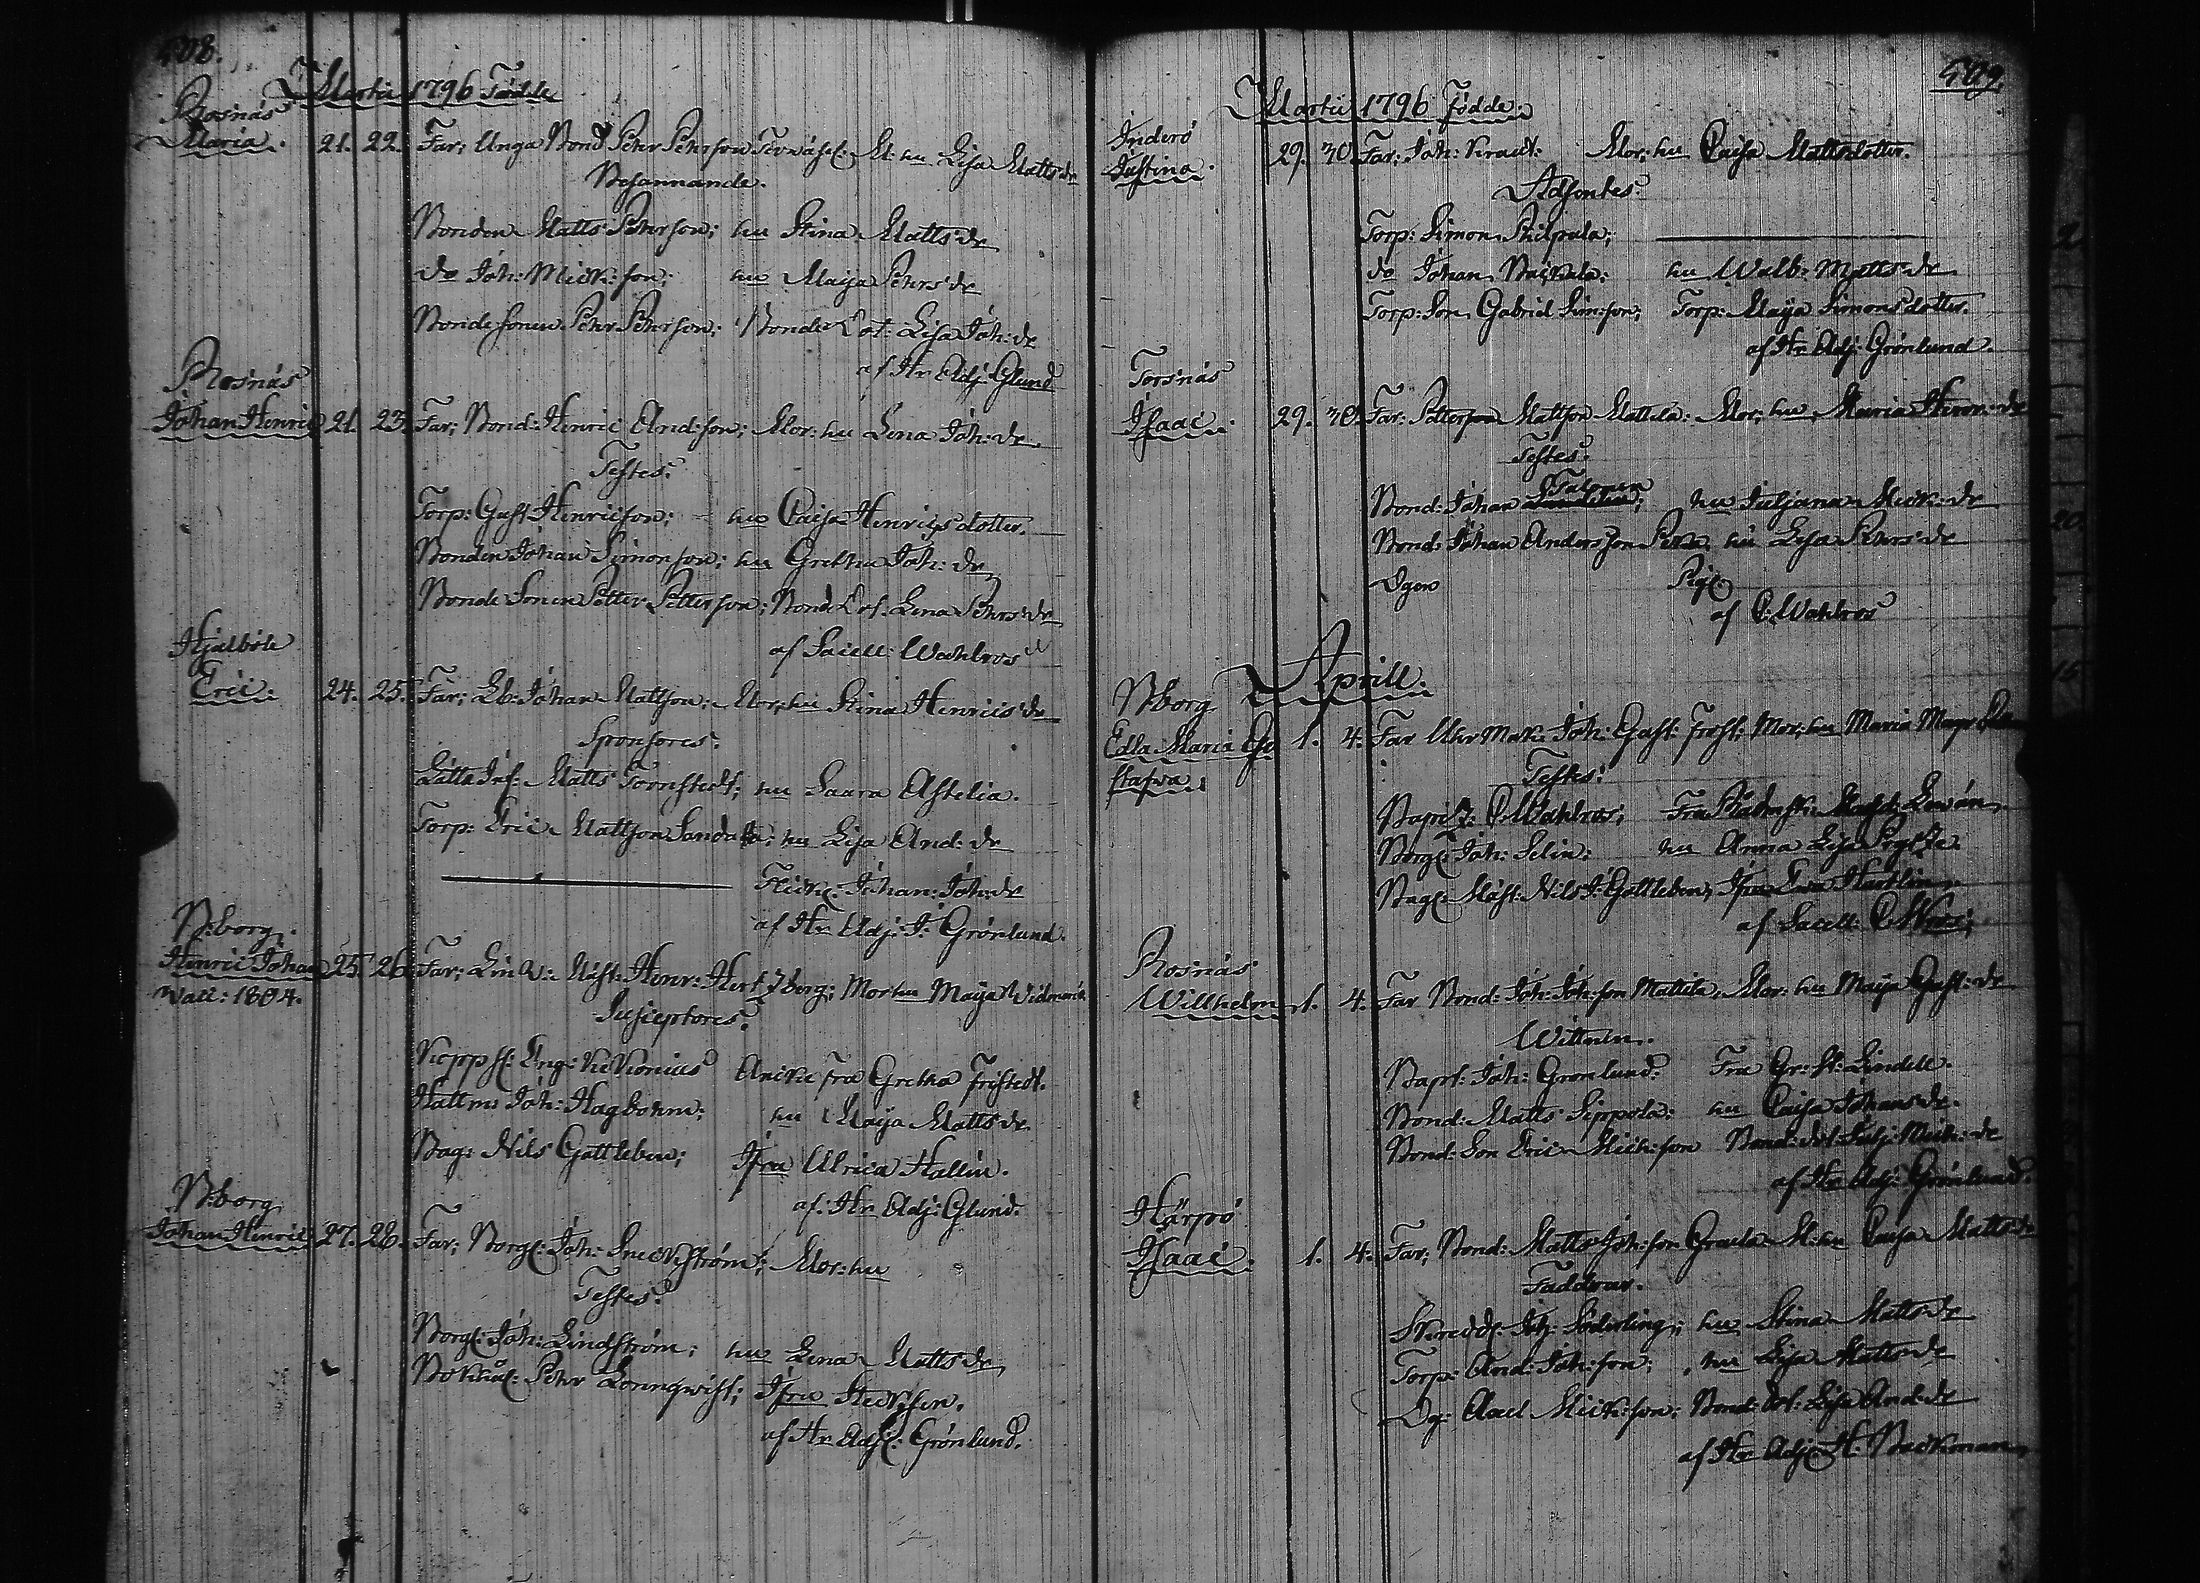 508.
I Martii 1796 Födde
Rosnäs
Maria. 21. 22. Far; Unga Bond Pehr Pehrson M: hu Lisa Matts dr
Besannande.
Bonden Matts Pehrson; hu Stina Matts dr
do Joh: Mick: son; hu Maija Pehrs dr
Bondesonen Pehr Pehrson; Bonde Dot: Lisa Joh: dr
af Hr Adj: Glund
Rosnäs
Johan Henric 21. 23. Far; Bond: Henric And: son; Mor: hu Lena Joh: dr
Testes.
Torp: Gust Henricson; hu Caisa Henricsdotter.
Bonden Johan Simonson; hu Gretha Joh: dr
Bonde Sonen Petter Petterson; Bond Dot: Lena Pehrs dr
af Sacell: Wahlroos
Hjulböle
Eric. 24. 25. Far; Johan Mattson; Mor: hu Stina Henrics dr
Sponsores.
Matts Tornstedt; hu Saara Astelia.
Torp: Eric Mattson hu Lisa And: dr
Johan: Joh: dr
af Hr Adj: J: Grönlund.
B:borg.
Henric Johan 25. 26. Far; Mäst: Henr: Hertzberg; Mor hu Maija Widman
Wacc: 1804.
Susceptores.
Enckefru Gretha Fristedt.
Joh: Hagbohm; hu Maija Matts dr
Bag: Nils Gottleben; Jfru Ulrica Hallin.
af: Hr Adj: Glund.
B:borg
Johan Henric 27. 28. Far; Borg: Joh: Sneckström; Mor: hu
Testes.
Borg: Joh: Lindström; hu Lena Matts dr
Pehr Lönnqwist; Jfru
af Hr Adj: Grönlund.
509.
I Martii 1796 Födde.
Inderö
Justina. 29. 30. Far: Joh: Mor: hu Caisa Mattsdotter.
Adsontes.
Torp: Simon
do Johan hu Walb: Matts dr
Torp: Son Gabriel Sim: son; Torp: Maija Simonsdotter.
af Hr Adj: Grönlund.
Torsnäs
Isaac. 29. 30. Far: Petterson Mattson Mattila: Mor: hu Maria Henr: dr
Testes.
Bond: Johan hu Juljana Mick: dr
Bond: Johan Andersson hu Lisa Pehrs dr
Dgen Pig:
af C: Wahlroos
Aprill.
B:borg
Edla Maria Gu 1. 4. Far Joh: Gust: Frost; Mor: hu Maria Magr
stafva.
Testes.
C: Wahlroos;
Borg: Joh: Selin; hu Anna Lisa
Mäst: Nils J: Gottleben; Jfru
af Sacell:
Rosnäs
Willhelm 1. 4. Far Bond: Joh: Joh: son Mattila, Mor: hu Maija Gust: dr
Wittnen.
Joh: Grönlund. Fru Lindell.
Bond: Matts Sippola; hu Caisa Johans dr.
Bond: Son Eric Mick: son Bond: dot: Julj: Mick: dr
af Hr Adj: Grönlund.
Härpö
Isaac. 1. 4. Far; Bond: Matts Joh: son M: hu Caisa Matts dr
Faddrar.
Joh: Söderling; hu Stina Matts dr
Torp: And: Joh: son; hu Lisa Matts dr
Dg: Axel Mick: son; Bond: dot: Lisa And: dr
af Hr Adj: H: Backman